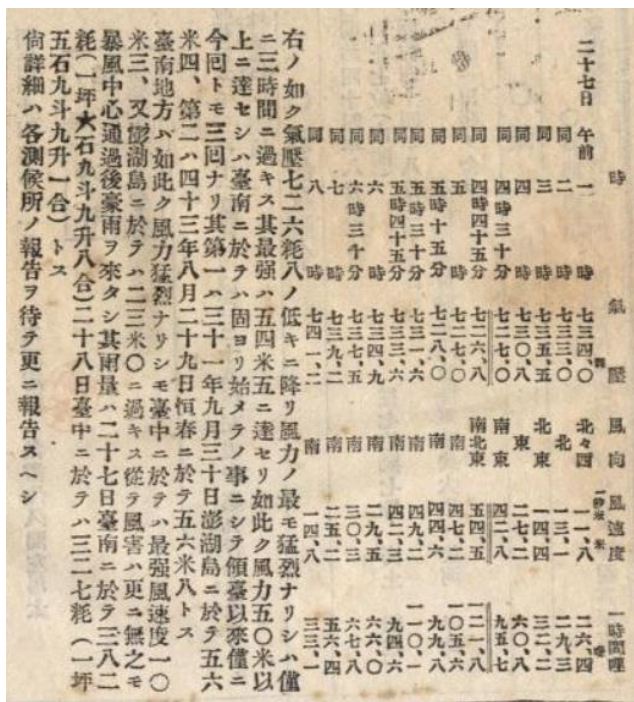 時　氣壓　風向　風速度 一秒米　一時間哩
二十七日　午前　一時　七三四、〇　北々西　一一、八　二六、四
同　二時　七三三、〇　北　一三、一　二九、三
同　三時　七三五、五　北東　一四、四　三二、二
同　四時　七三〇、八　東　二七、二　六〇、八
同　四時三十分　七二七、〇　南東　四二、八　九五、七
同　四時四十五分　七二六、八　南北東　五四、五　一二一、八
同　五時　七二七、〇　南　四七、二　一〇五、六
同　五時十五分　七二八、〇　南　四四、六　九九、八
同　五時三十分　七三一、六　南　四九、二　一一〇、一
同　五時四十五分　七三三、六　南　四二、三　九四、六
同　六時　七三四、九　南　二九、五　六六、〇
同　六時三十分　七三七、五　南　三〇、三　六七、八
同　七時　七三九、二　南　二五、二　五六、四
同　八時　七四一、二　南　一四、八　三三、一
右ノ如ク氣壓七二六粍八ノ低キニ降リ風力ノ最モ猛烈ナリシハ僅
ニ三時間ニ過キス其最强ハ五四米五ニ達セリ如此ク風力五〇米以
上ニ達セシハ臺南ニ於テハ固ヨリ始メテノ事ニシテ領臺以來僅ニ
今回トモ三回ナリ其第一ハ三十一年九月三十日澎湖島ニ於テ五六
米四、第二ハ四十三年八月二十九日恒春ニ於テ五六米八トス
臺南地方ハ如此ク風力猛烈ナリシモ臺中ニ於テハ最强風速度一〇
米三、又澎湖島ニ於テハ二三米〇ニ過キス從テ風害ハ更ニ無之モ
暴風中心通過後豪雨ヲ來タシ其雨量ハ二十七日臺南ニ於テ三八二
粍(一坪六石九斗九升八合)二十八日臺中ニ於テハ三二七粍(一坪
五石九斗九升一合)トス
尙詳細ハ各測候所ノ報告ヲ待テ更ニ報告スヘシ